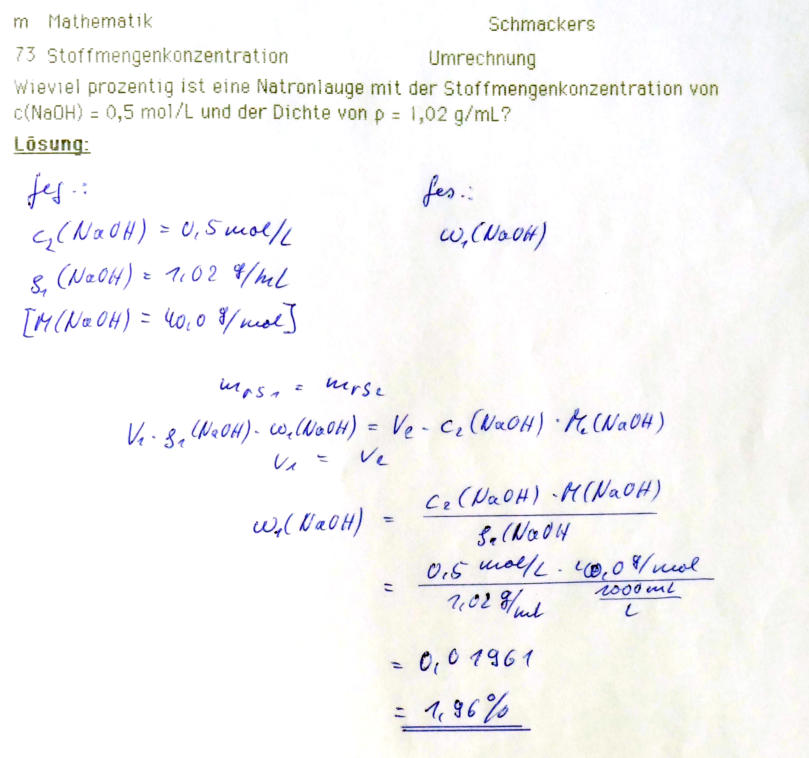 m Mathematik Schmackers
73 Stoffmengenkonzentration Umrechnung
Wieviel prozentig ist eine Natronlauge mit der Stoffmengenkonzentration von
c(NaOH) = 0,5 mol/L und der Dichte von ρ = 1,02 g/mL?
Lösung:
geg.: ges.:
c₂(NaOH) = 0,5 mol/L w₁(NaOH)
ρ₁(NaOH) = 1,02 g/mL
[M(NaOH) = 40,0 g/mol]
m_rS1 = m_rS2
V₁ · ρ₁(NaOH) · w₁(NaOH) = V₂ · c₂(NaOH) · M₂(NaOH)
V₁ = V₂
w₁(NaOH) = c₂(NaOH) · M(NaOH)
ρ₁(NaOH
= 0,5 mol/L · 40,0 g/mol
1,02 g/mL 1000 mL
L
= 0,01961
= 1,96%